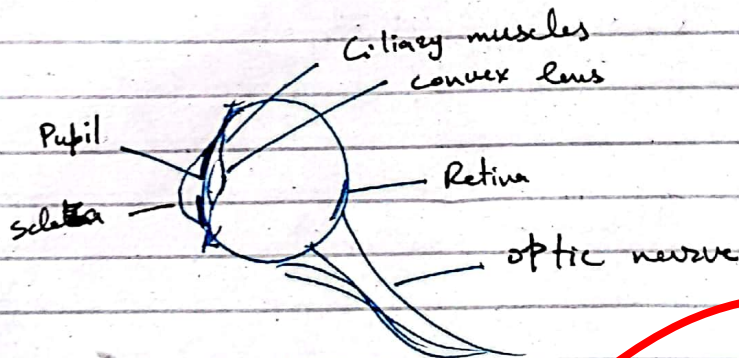 Ciliary muscles
convex lens
Pupil
Retina
Sclera
optic nerve